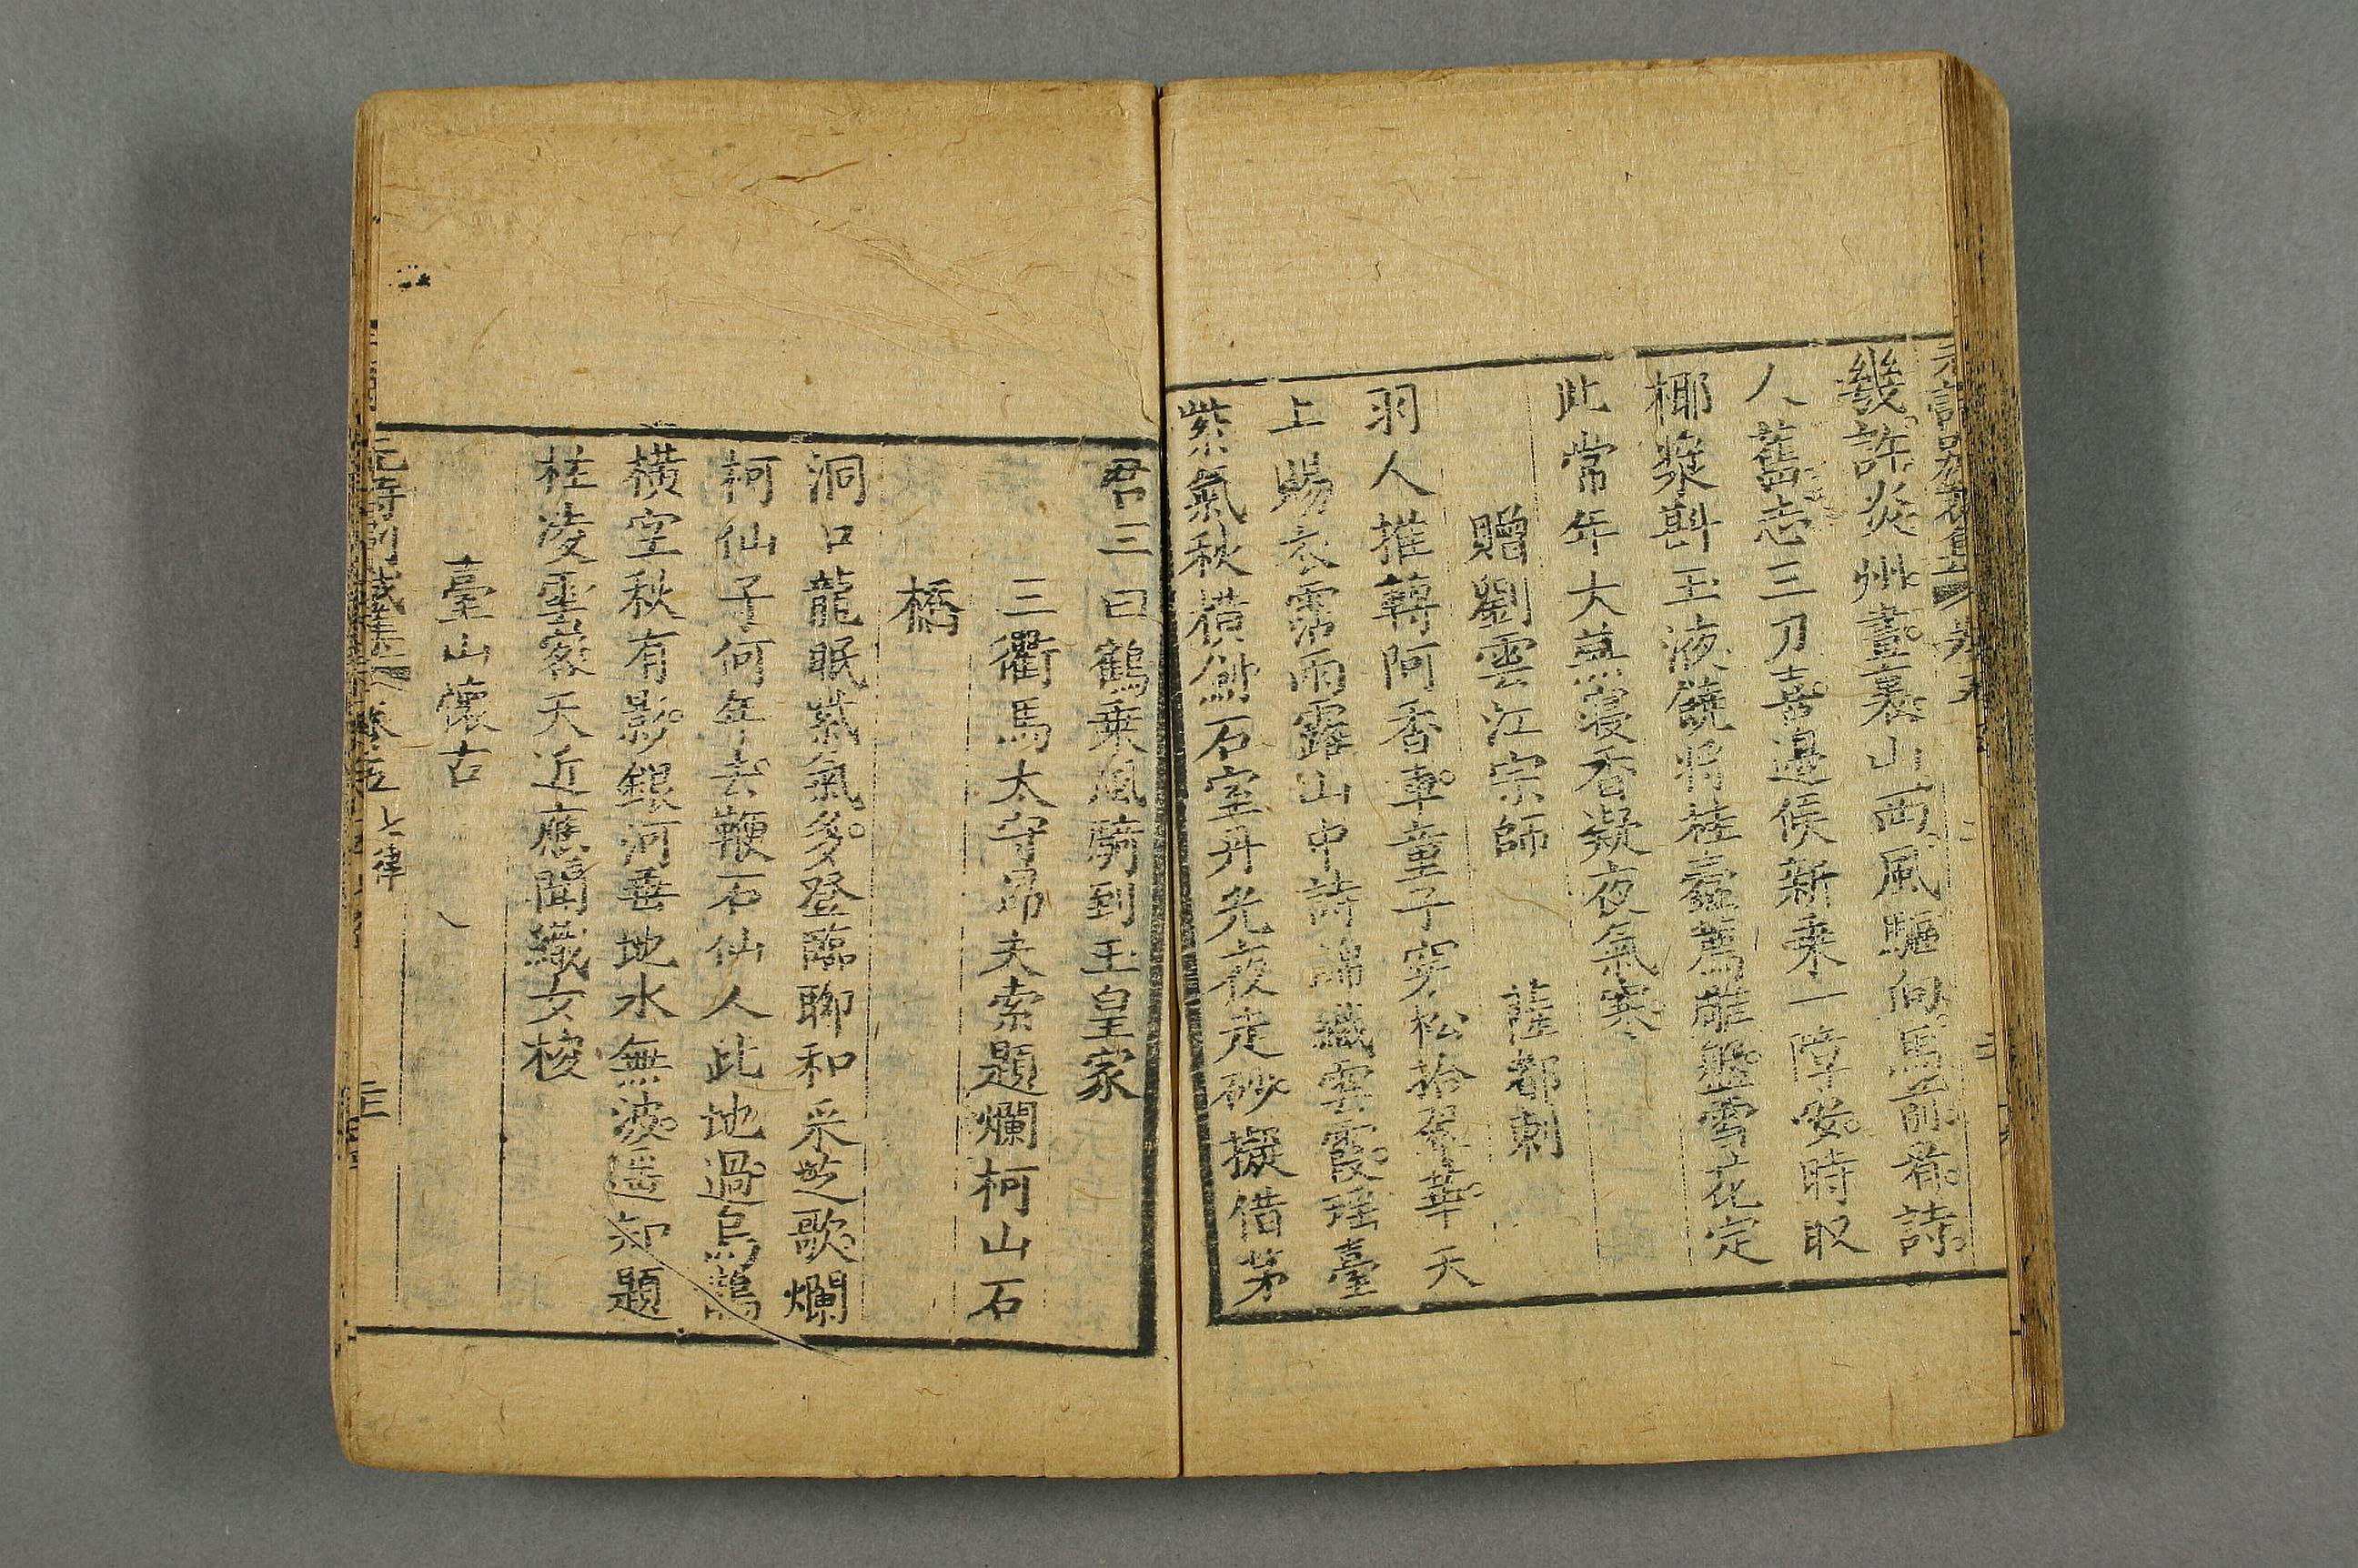 幾許炎州畫裏山兩風驅向馬前看詩
人舊志三刀喜邊候新乘一障安時取
椰漿斟玉液饒將桂蠹薦雕盤雪花定
此常年大燕寢香凝夜氣寒
贈劉雲江宗師 薩都剌
羽人推轉阿香車童子穿松拾翠華天
上賜衣霑雨露山中詩滿織雲霞瑶臺
紫氣秋橫劍石室丹光夜走砂擬借茅
君三曰鶴乗風騎到玉皇家
三衢馬太守昻夫索題爛柯山石
橋
洞口龍眠紫氣多登臨聊和采芝歌爛
柯仙子何年去鞭石仙人此地過烏鵲
橫空秋有影銀河垂地水無波遥知題
柱凌雲客天近應聞織女梭
臺山懷古
卷五 七律
三